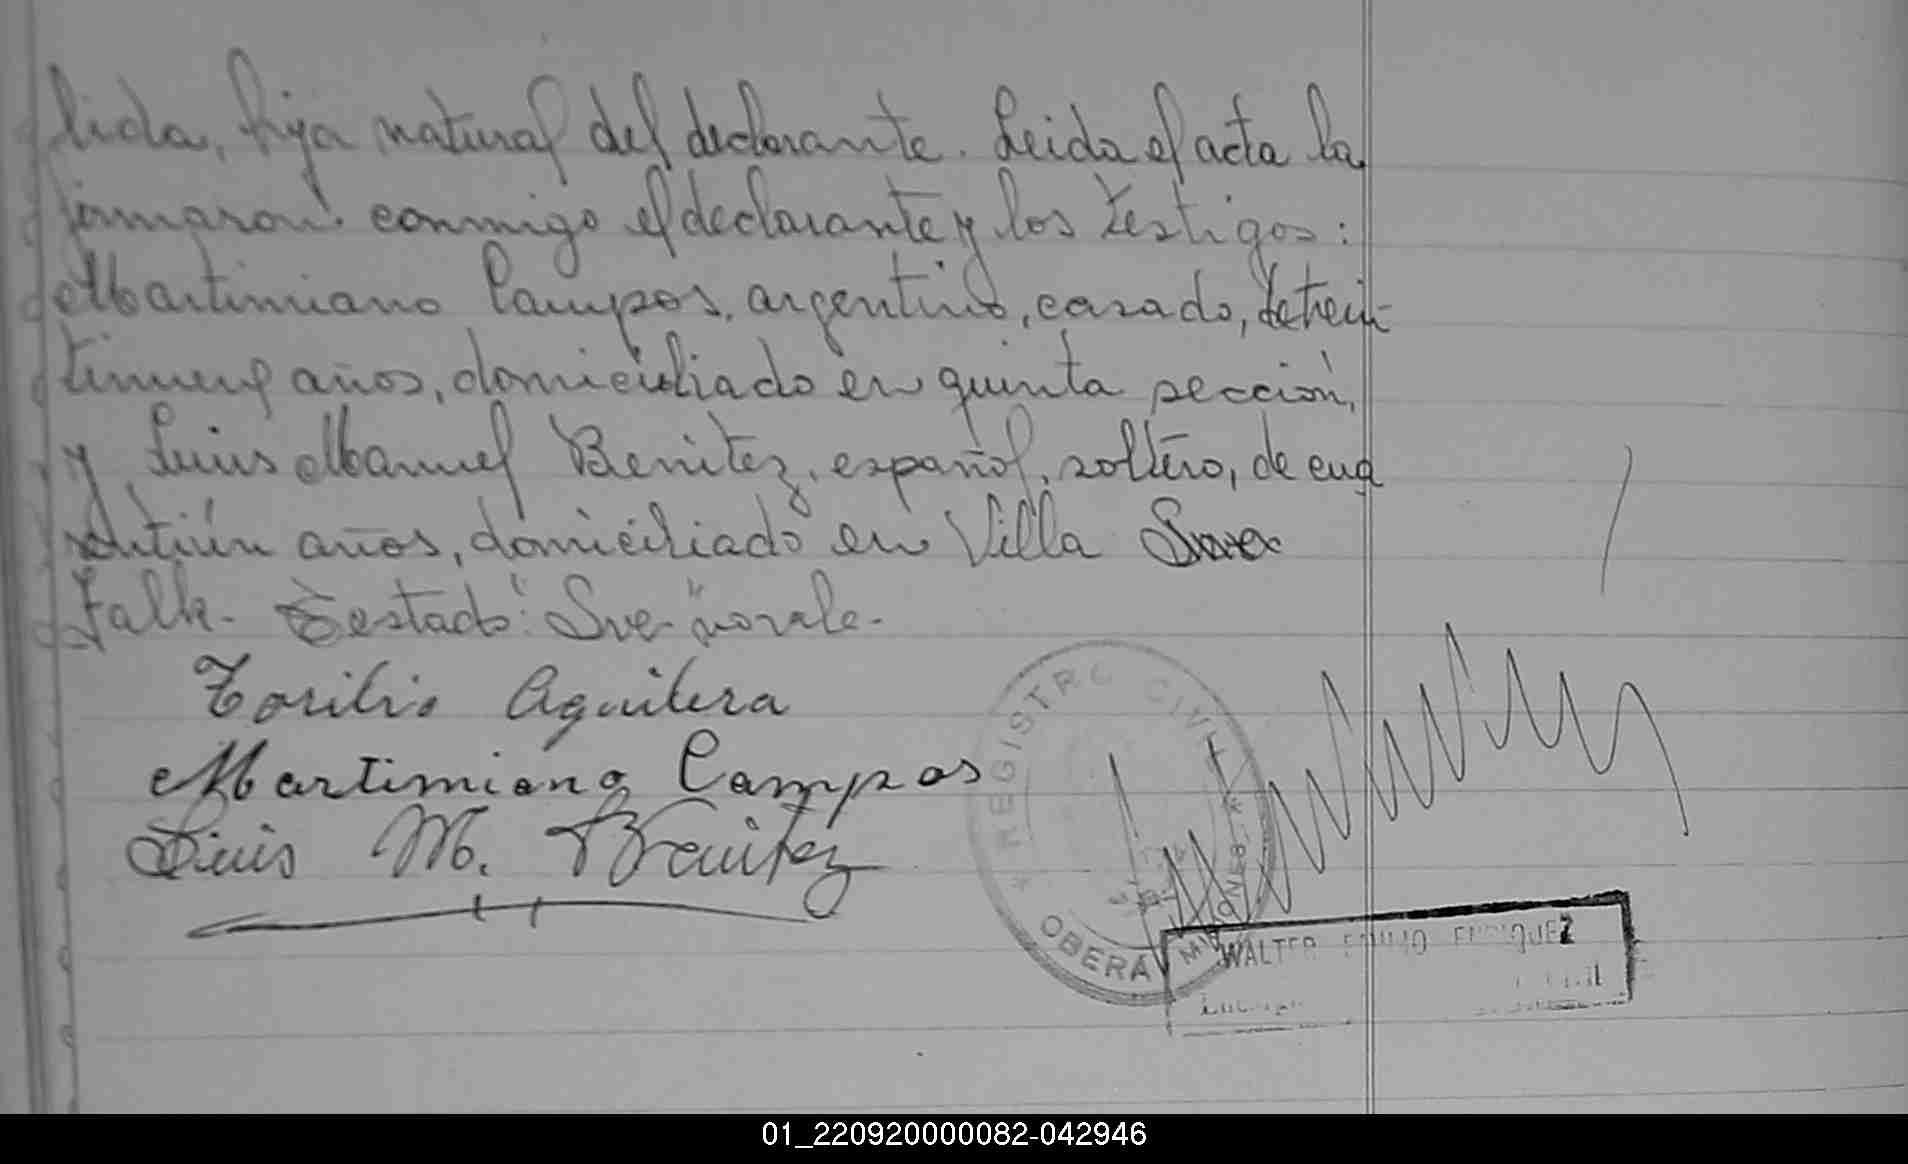 lida, hija natural del declarante. Leida el acta la
firmaron conmigo el declarante y los testigos:
Martimiano Campos, argentino, casado, de trein-
tinueve años, domiciliado en quinta sección,
y Luis Manuel Benitez, español, soltero, de cua
rentiún años, domiciliado en Villa Svea
Falk. Testado: "Sve" no vale.
Torilio Aguilera
Martimiano Campos
Luis M. Benitez
* REGISTRO CIVIL *
OBERA MISIONES
WALTER EMILIO ENRIQUEZ
01_220920000082-042946